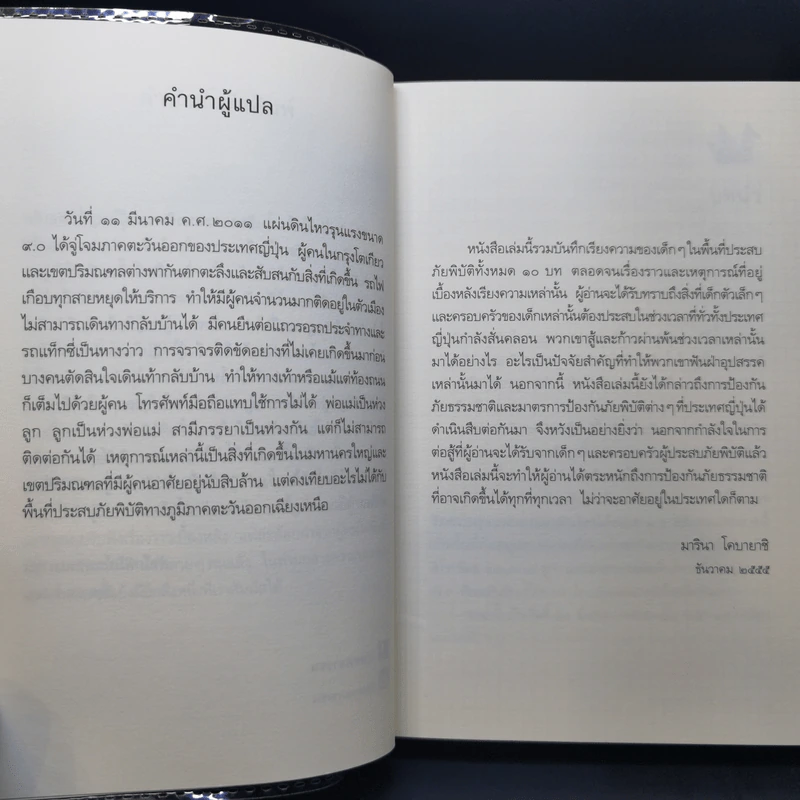 คำนำผู้แปล
วันที่ ๑๑ มีนาคม ค.ศ. ๒๐๑๑ แผ่นดินไหวรุนแรงขนาด
๙.๐ ได้จู่โจมภาคตะวันออกของประเทศญี่ปุ่น ผู้คนในกรุงโตเกียว
และเขตปริมณฑลต่างพากันตกตะลึงและสับสนกับสิ่งที่เกิดขึ้น รถไฟ
เกือบทุกสายหยุดให้บริการ ทำให้มีผู้คนจำนวนมากติดอยู่ในตัวเมือง
ไม่สามารถเดินทางกลับบ้านได้ มีคนยืนต่อแถวรอรถประจำทางและ
รถแท็กซี่เป็นหางว่าว การจราจรติดขัดอย่างที่ไม่เคยเกิดขึ้นมาก่อน
บางคนตัดสินใจเดินเท้ากลับบ้าน ทำให้ทางเท้าหรือแม้แต่ท้องถนน
ก็เต็มไปด้วยผู้คน โทรศัพท์มือถือแทบใช้การไม่ได้ พ่อแม่เป็นห่วง
ลูก ลูกเป็นห่วงพ่อแม่ สามีภรรยาเป็นห่วงกัน แต่ก็ไม่สามารถ
ติดต่อกันได้ เหตุการณ์เหล่านี้เป็นสิ่งที่เกิดขึ้นในมหานครใหญ่และ
เขตปริมณฑลที่มีผู้คนอาศัยอยู่นับสิบล้าน แต่คงเทียบอะไรไม่ได้กับ
พื้นที่ประสบภัยพิบัติทางภูมิภาคตะวันออกเฉียงเหนือ
หนังสือเล่มนี้รวมบันทึกเรียงความของเด็กๆ ในพื้นที่ประสบ
ภัยพิบัติทั้งหมด ๑๐ บท ตลอดจนเรื่องราวและเหตุการณ์ที่อยู่
เบื้องหลังเรียงความเหล่านั้น ผู้อ่านจะได้รับทราบถึงสิ่งที่เด็กตัวเล็กๆ
และครอบครัวของเด็กเหล่านั้นต้องประสบในช่วงเวลาที่ทั่วทั้งประเทศ
ญี่ปุ่นกำลังสั่นคลอน พวกเขาสู้และก้าวผ่านพ้นช่วงเวลาเหล่านั้น
มาได้อย่างไร อะไรเป็นปัจจัยสำคัญที่ทำให้พวกเขาฟันฝ่าอุปสรรค
เหล่านั้นมาได้ นอกจากนี้ หนังสือเล่มนี้ยังได้กล่าวถึงการป้องกัน
ภัยธรรมชาติและมาตรการป้องกันภัยพิบัติต่างๆ ที่ประเทศญี่ปุ่นได้
ดำเนินสืบต่อกันมา จึงหวังเป็นอย่างยิ่งว่า นอกจากกำลังใจในการ
ต่อสู้ที่ผู้อ่านจะได้รับจากเด็กๆ และครอบครัวผู้ประสบภัยพิบัติแล้ว
หนังสือเล่มนี้จะทำให้ผู้อ่านได้ตระหนักถึงการป้องกันภัยธรรมชาติ
ที่อาจเกิดขึ้นได้ทุกที่ทุกเวลา ไม่ว่าจะอาศัยอยู่ในประเทศใดก็ตาม
มารินา โคบายาชิ
ธันวาคม ๒๕๕๕